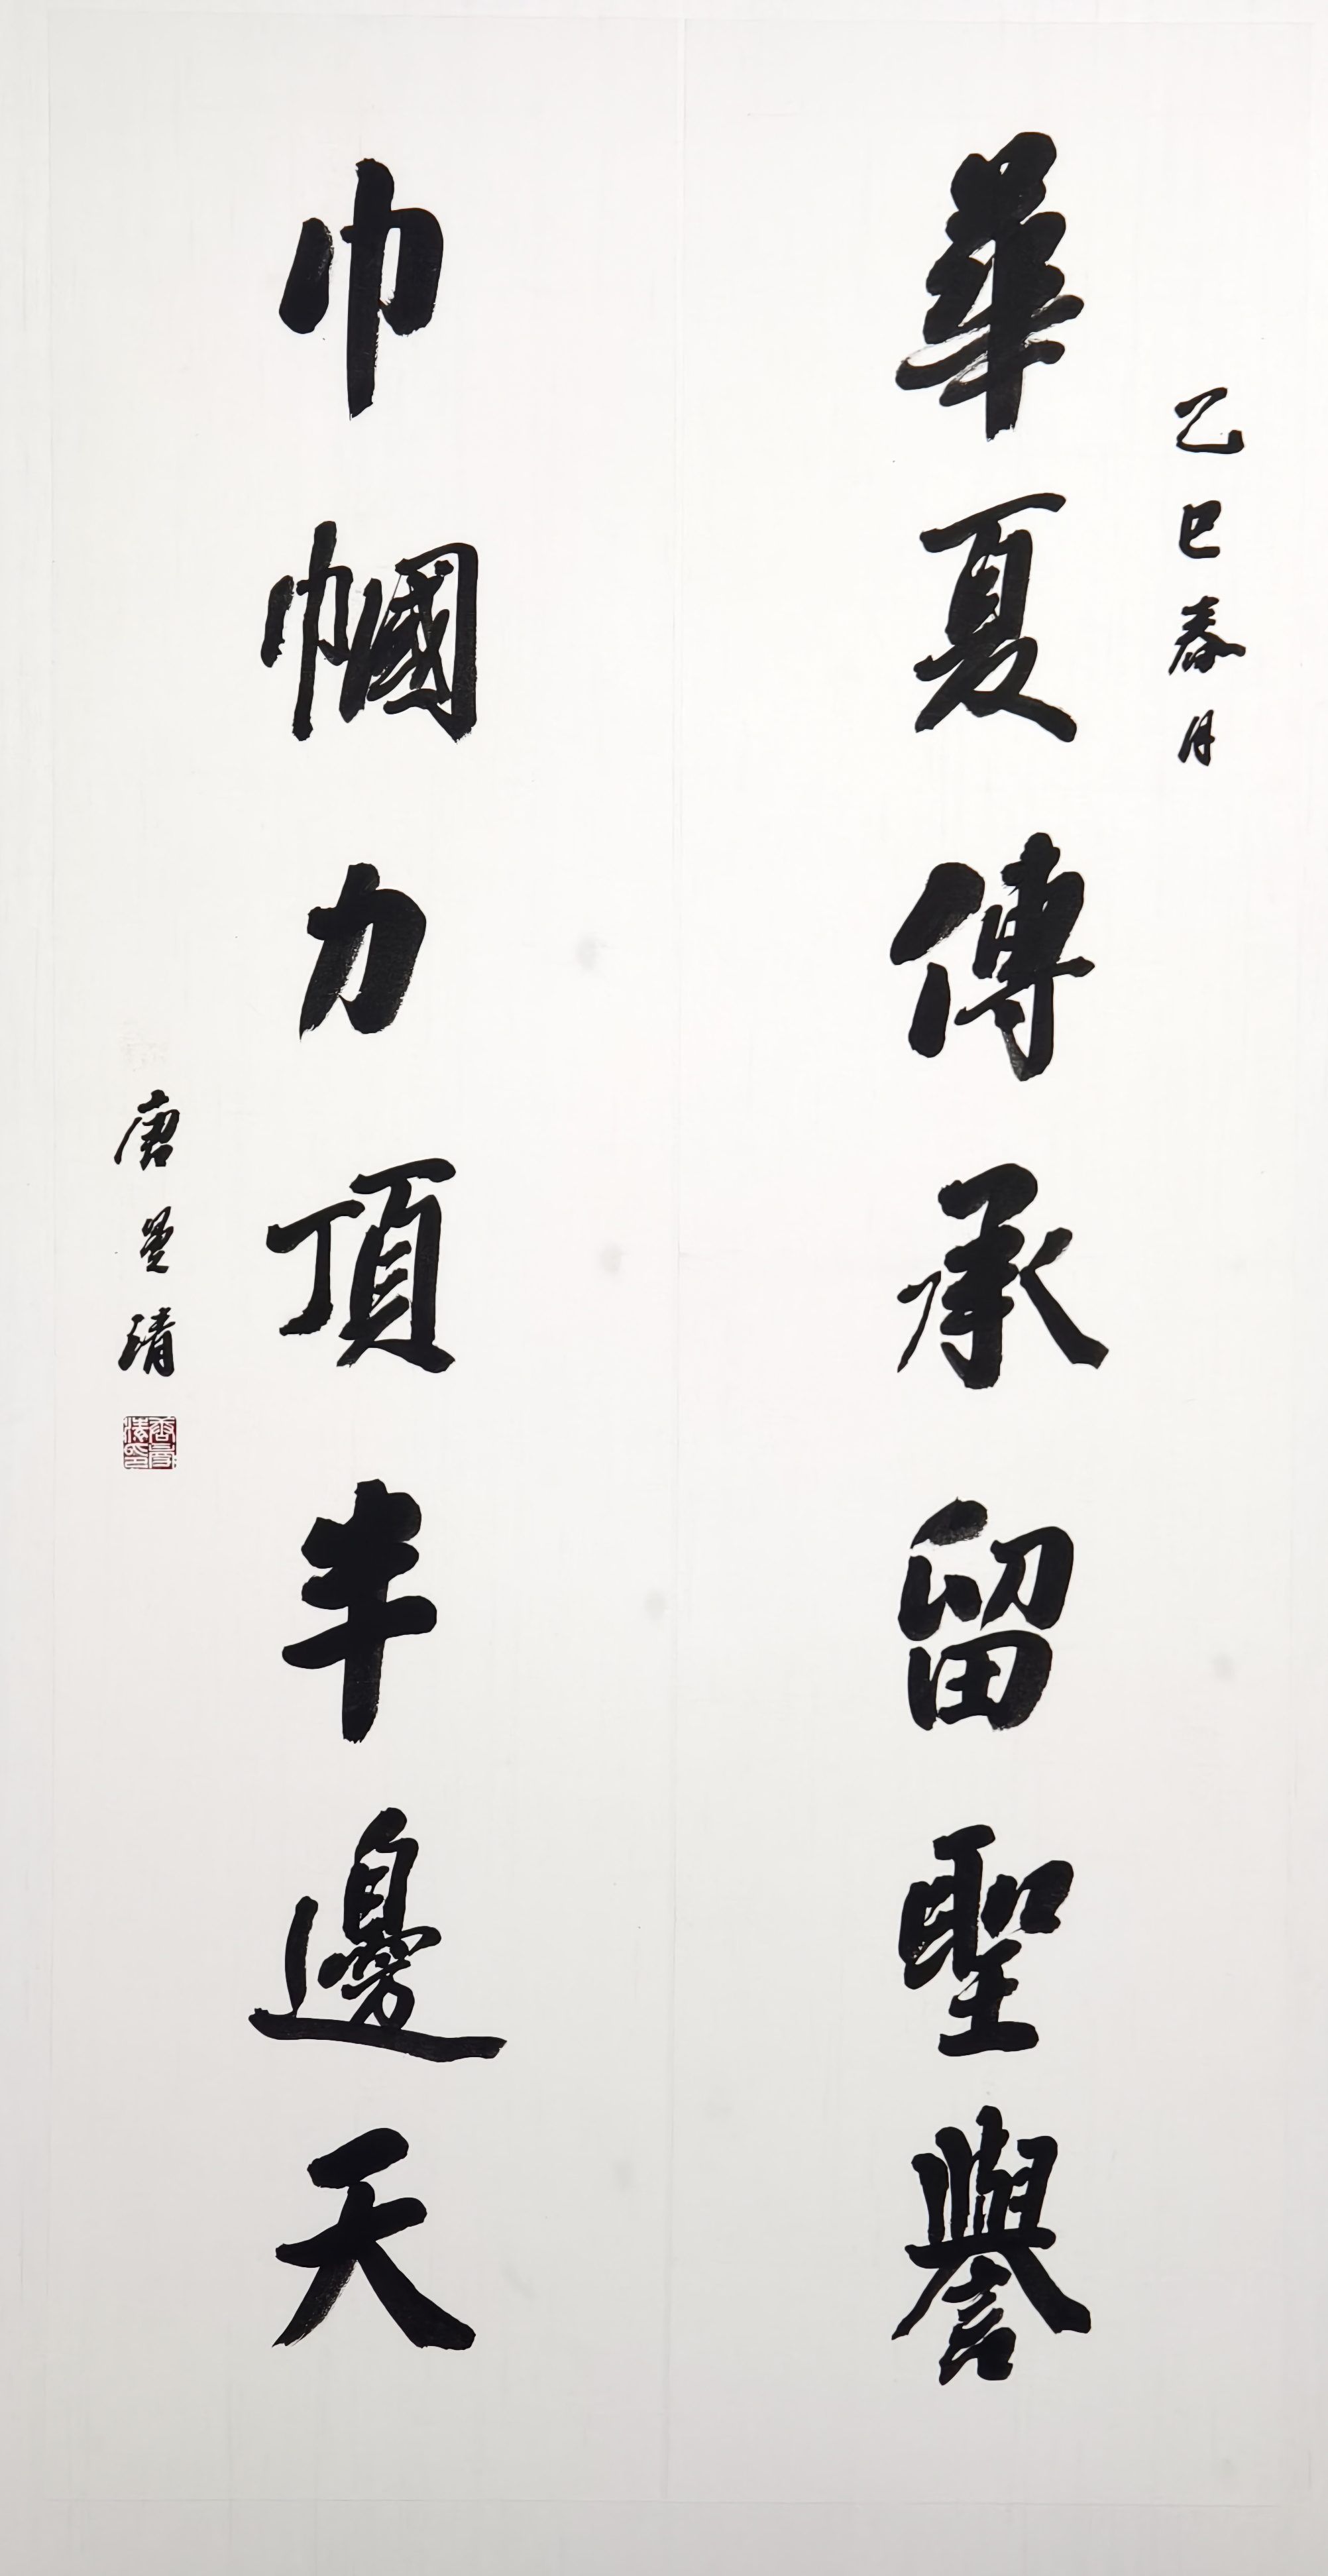 乙巳春月
華夏傳承留聖譽
巾幗力頂半邊天
唐 清